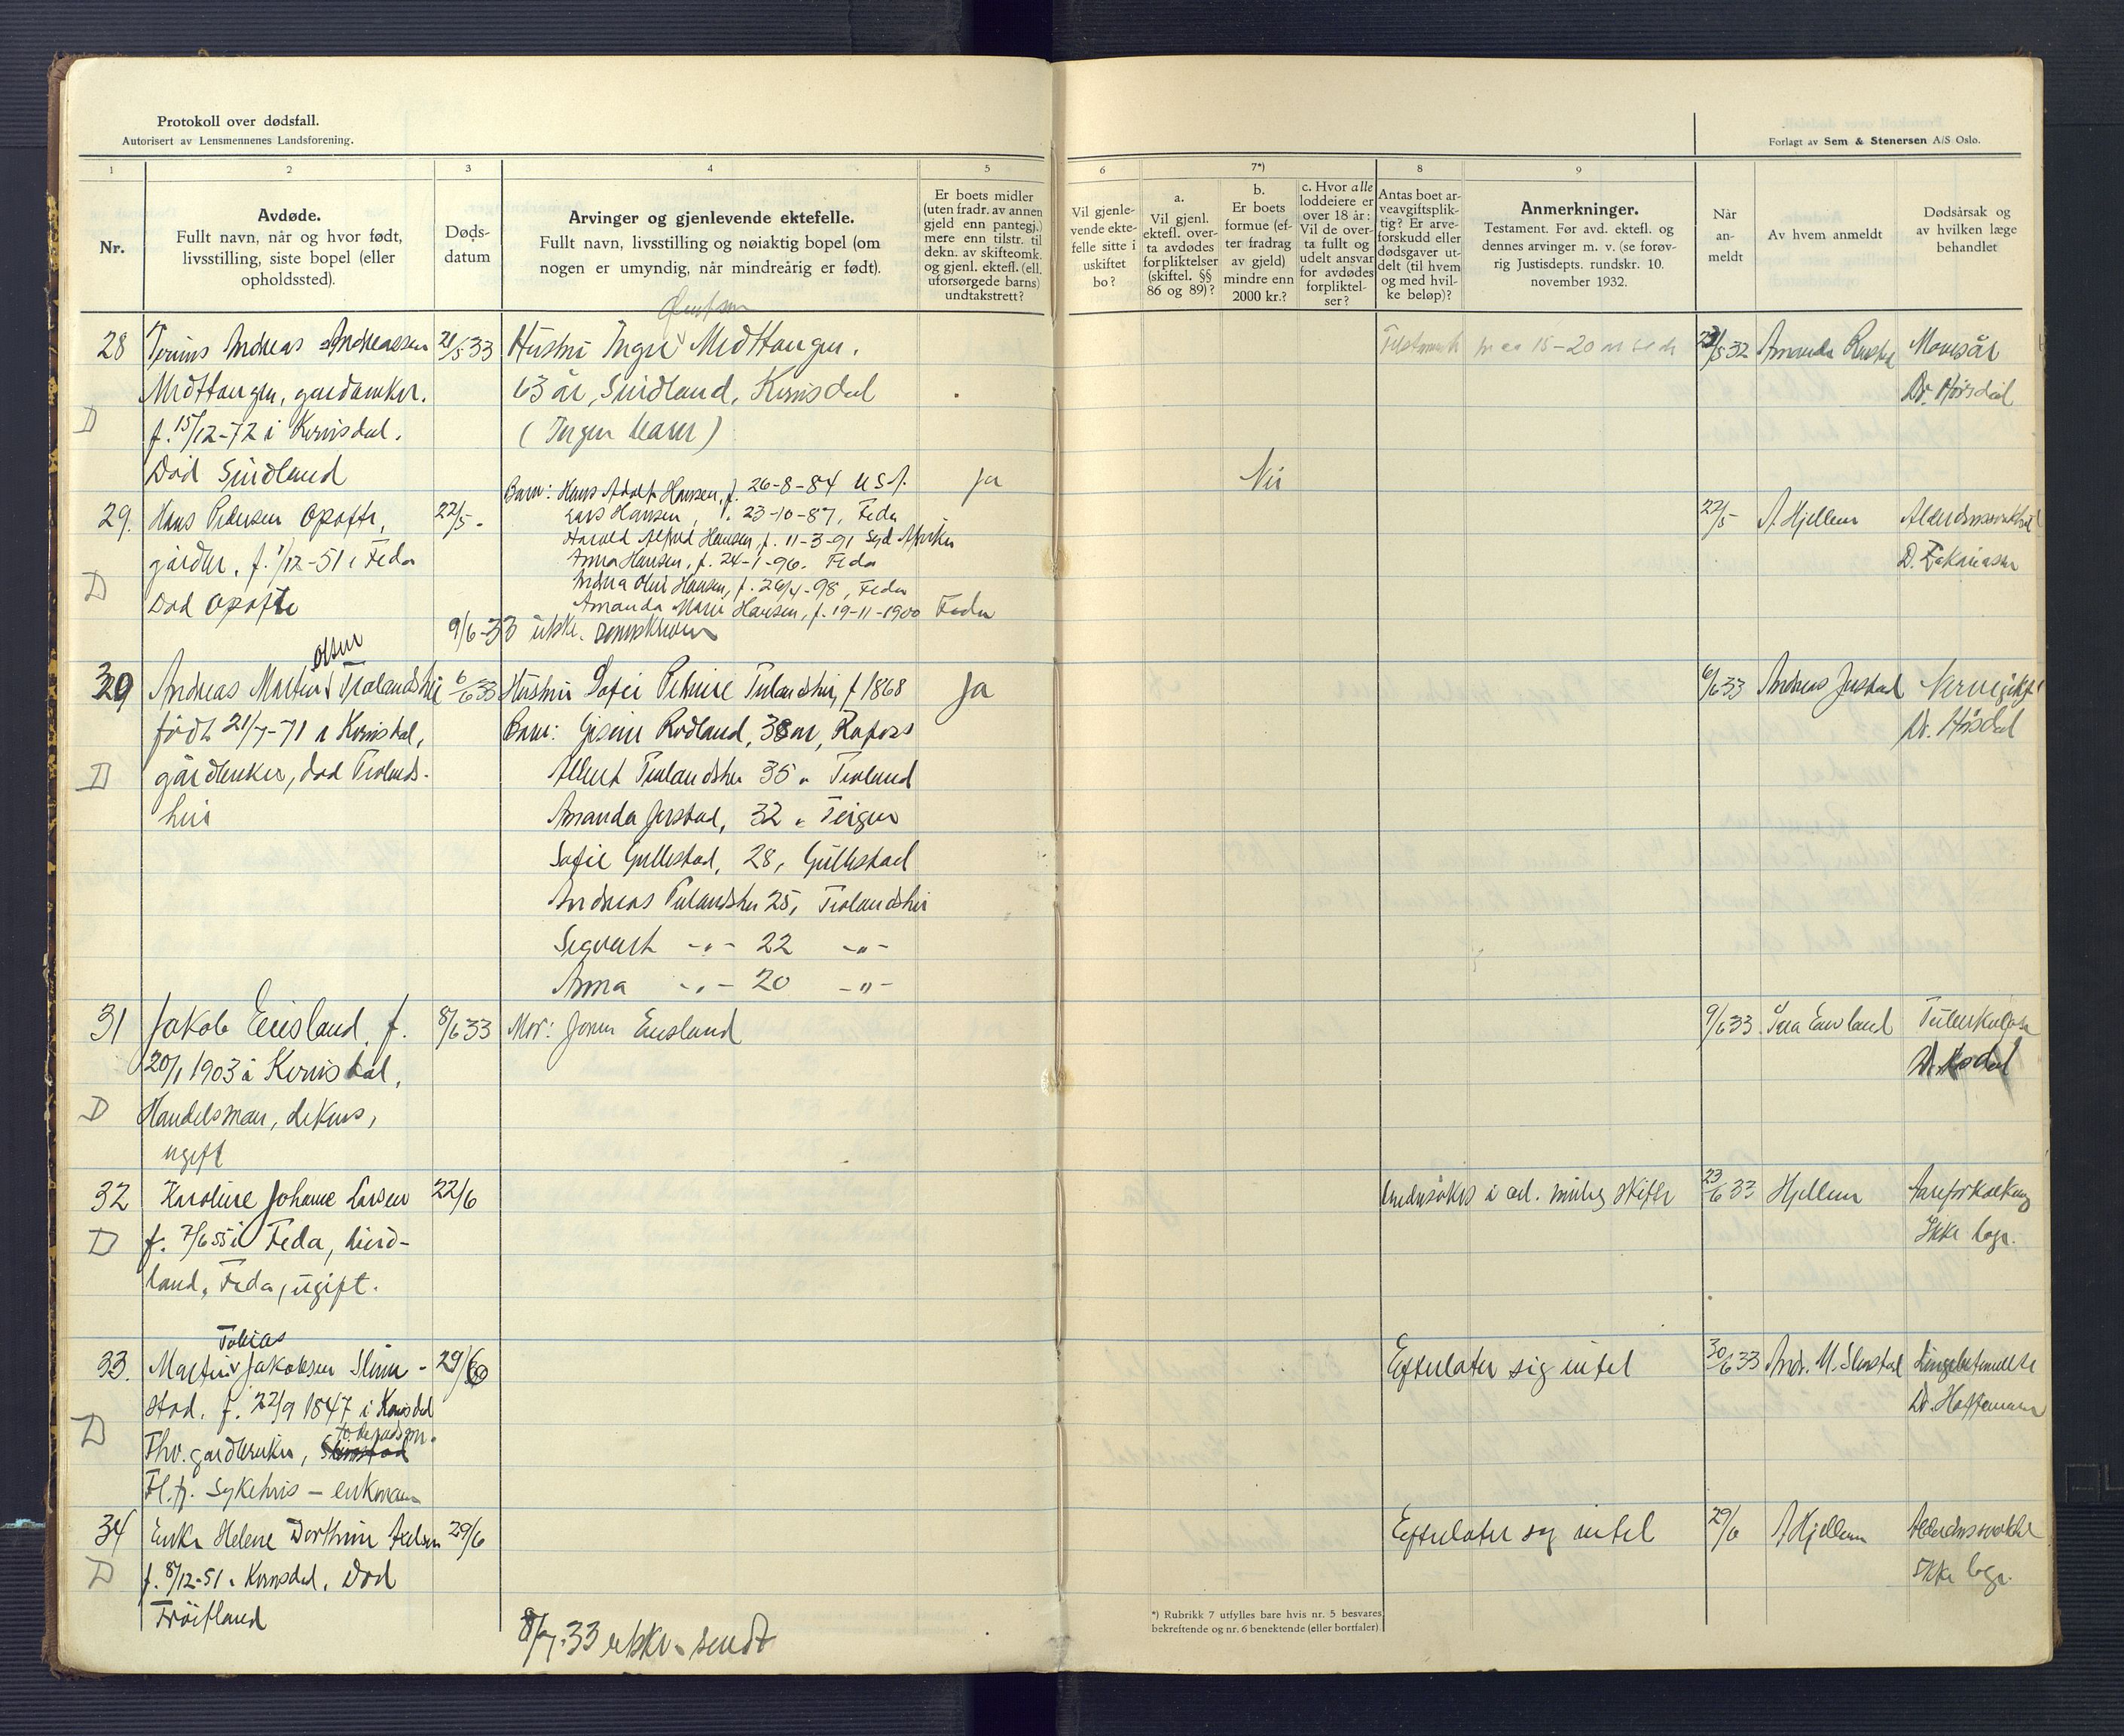 Protokoll over dødsfall.
Autorisert av Lensmennenes Landsforening.
Forlagt av Sem & Stenersen A/S Oslo.
1 2 3 4 5 6 7*) 8 9
Nr.
Avdøde.
Fullt navn, når og hvor født,
livsstilling, siste bopel (eller
opholdssted).
Døds-
datum
Arvinger og gjenlevende ektefelle.
Fullt navn, livsstilling og nøiaktig bopel (om
nogen er umyndig, når mindreårig er født).
Er boets midler
(uten fradr. av annen
gjeld enn pantegj.)
mere enn tilstr. til
dekn. av skifteomk.
og gjenl. ektefl. (ell.
uforsørgede barns)
undtakstrett?
Vil gjenle-
vende ekte-
felle sitte i
uskiftet
bo?
a.
Vil gjenl.
ektefl. over-
ta avdødes
forpliktelser
(skiftel. §§
86 og 89)?
b.
Er boets
formue (ef-
ter fradrag
av gjeld)
mindre enn
2000 kr.?
c. Hvor alle
loddeiere er
over 18 år:
Vil de over-
ta fullt og
udelt ansvar
for avdødes
forpliktel-
ser?
Antas boet ar-
veavgiftsplik-
tig? Er arve-
forskudd eller
dødsgaver ut-
delt (til hvem
og med hvil-
ke beløp)?
Anmerkninger.
Testament. Før avd. ektefl. og
dennes arvinger m. v. (se forøv-
rig Justisdepts. rundskr. 10.
november 1932.
Når
an-
meldt
Av hvem anmeldt
Dødsårsak og
av hvilken læge
behandlet
28 Andreas Andreassen
Midttangen, gardbruker.
f. 15/12-72 i Kvinesdal.
Død Sindland
D
21/5 33
Hustru Inger Midttangen.
63 år, Sindland, Kvinesdal
(Ingen barn)
15-20
21/5 32
Amanda
Dr. Hörsdal
29. Hans Pedersen Opofte,
gårdbr. f. 1/12-51 i Feda
Död Opofte
D
22/5.
Barn: Hans Adolf Hansen, f. 26-8-84 U S A.
Lars Hansen, f. 23-10-87, Feda
Harald Alfred Hansen, f. 11-3-91 Syd Afrika
Anna Hansen, f. 24-1-96. Feda
Andrea Oline Hansen, f. 26/4-98, Feda
Amanda Marie Hansen, f. 19-11-1900 Feda
9/6-33 utskr.
Ja
Nei
22/5
A Hjellum
Alderdomssvakhet
D. Zakariassen
Olsen
30 Andreas Martin Trælandshei
født 21/7-71 i Kvinesdal,
gårdbruker, død Trælands-
hei
D
6/6 33
Hustru Sofie Petrine Trælandshei, f 1868
Barn: Gisine Rødland, 38 år, Rafoss
Albert Trælandshei 35 " Træland
Amanda Jerstad, 32 " Teigen
Sofie Gullestad, 28, Gullestad
Andreas Trælandshei 25, Trælandshei
Sigvart -"- 22 -"-
Anna -"- 20 -"-
Ja
6/6 33
Andreas Jerstad
Dr. Hörsdal
31 Jakob Eiesland, f.
20/1 1903 i Kvinesdal,
Handelsman, Lekns,
ugift
D
8/6 33
Mor: Eiesland
9/6 33
Tuberkulose
32 Karoline Johanne Larsen
f. 7/6 55 i Feda,
land, Feda, ugift.
D
22/6
23/6 33
Hjellum
Aareforkalkning
Ikke lege.
Tobias
33. Martin Jakobsen Slim-
stad. f. 22/9 1847 i Kvinesdal
Fhv. gardbruker,
Fl.fj. Sykehus – enkemann
D
29/6
Efterlater sig intet
30/6 33
Andr. M. Slimstad
Lungebetennelse
Dr. Hoffmann
34 Enke Helene Dorthine Axelsen
f. 8/12-51 i Kvinesdal. Død
Fröitland
D
29/6
Efterlater sig intet
29/6
A Hjellum
Alderdomssvakhet
Ikke lege.
8/7.33 utskr. sendt
*) Rubrikk 7 utfylles bare hvis nr. 5 besvares
bekreftende og nr. 6 benektende (eller bortfaler)